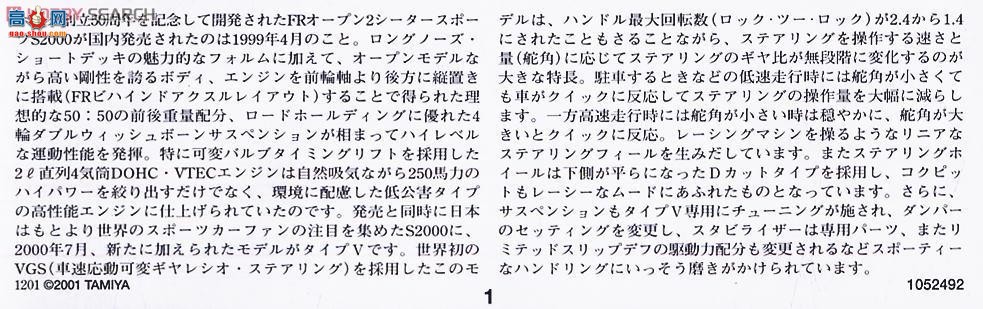 創立50周年を記念して開発されたFRオープン2シータースポー
ツS2000が国内発売されたのは1999年4月のこと。ロングノーズ・
ショートデッキの魅力的なフォルムに加えて、オープンモデルな
がら高い剛性を誇るボディ、エンジンを前輪軸より後方に縦置き
に搭載(FRビハインドアクスルレイアウト)することで得られた理
想的な50：50の前後重量配分、ロードホールディングに優れた4
輪ダブルウィッシュボーンサスペンションが相まってハイレベル
な運動性能を発揮。特に可変バルブタイミングリフトを採用した
2ℓ直列4気筒DOHC・VTECエンジンは自然吸気ながら250馬力の
ハイパワーを絞り出すだけでなく、環境に配慮した低公害タイプ
の高性能エンジンに仕上げられていたのです。発売と同時に日本
はもとより世界のスポーツカーファンの注目を集めたS2000に、
2000年7月、新たに加えられたモデルがタイプVです。世界初の
VGS(車速応動可変ギヤレシオ・ステアリング)を採用したこのモ
デルは、ハンドル最大回転数(ロック・ツー・ロック)が2.4から1.4
にされたこともさることながら、ステアリングを操作する速さと
量(舵角)に応じてステアリングのギヤ比が無段階に変化するのが
大きな特長。駐車するときなどの低速走行時には舵角が小さくて
も車がクイックに反応してステアリングの操作量を大幅に減らし
ます。一方高速走行時には舵角が小さい時は穏やかに、舵角が大
きいとクイックに反応。レーシングマシンを操るようなリニアな
ステアリングフィールを生みだしています。またステアリングホ
イールは下側が平らになったDカットタイプを採用し、コクピッ
トもレーシーなムードにあふれたものとなっています。さらに、
サスペンションもタイプV専用にチューニングが施され、ダンパー
のセッティングを変更し、スタビライザーは専用パーツ、またリ
ミテッドスリップデフの駆動力配分も変更されるなどスポーティー
なハンドリングにいっそう磨きがかけられています。
1201 ©2001 TAMIYA
1
1052492
高高网
gao-shou.com